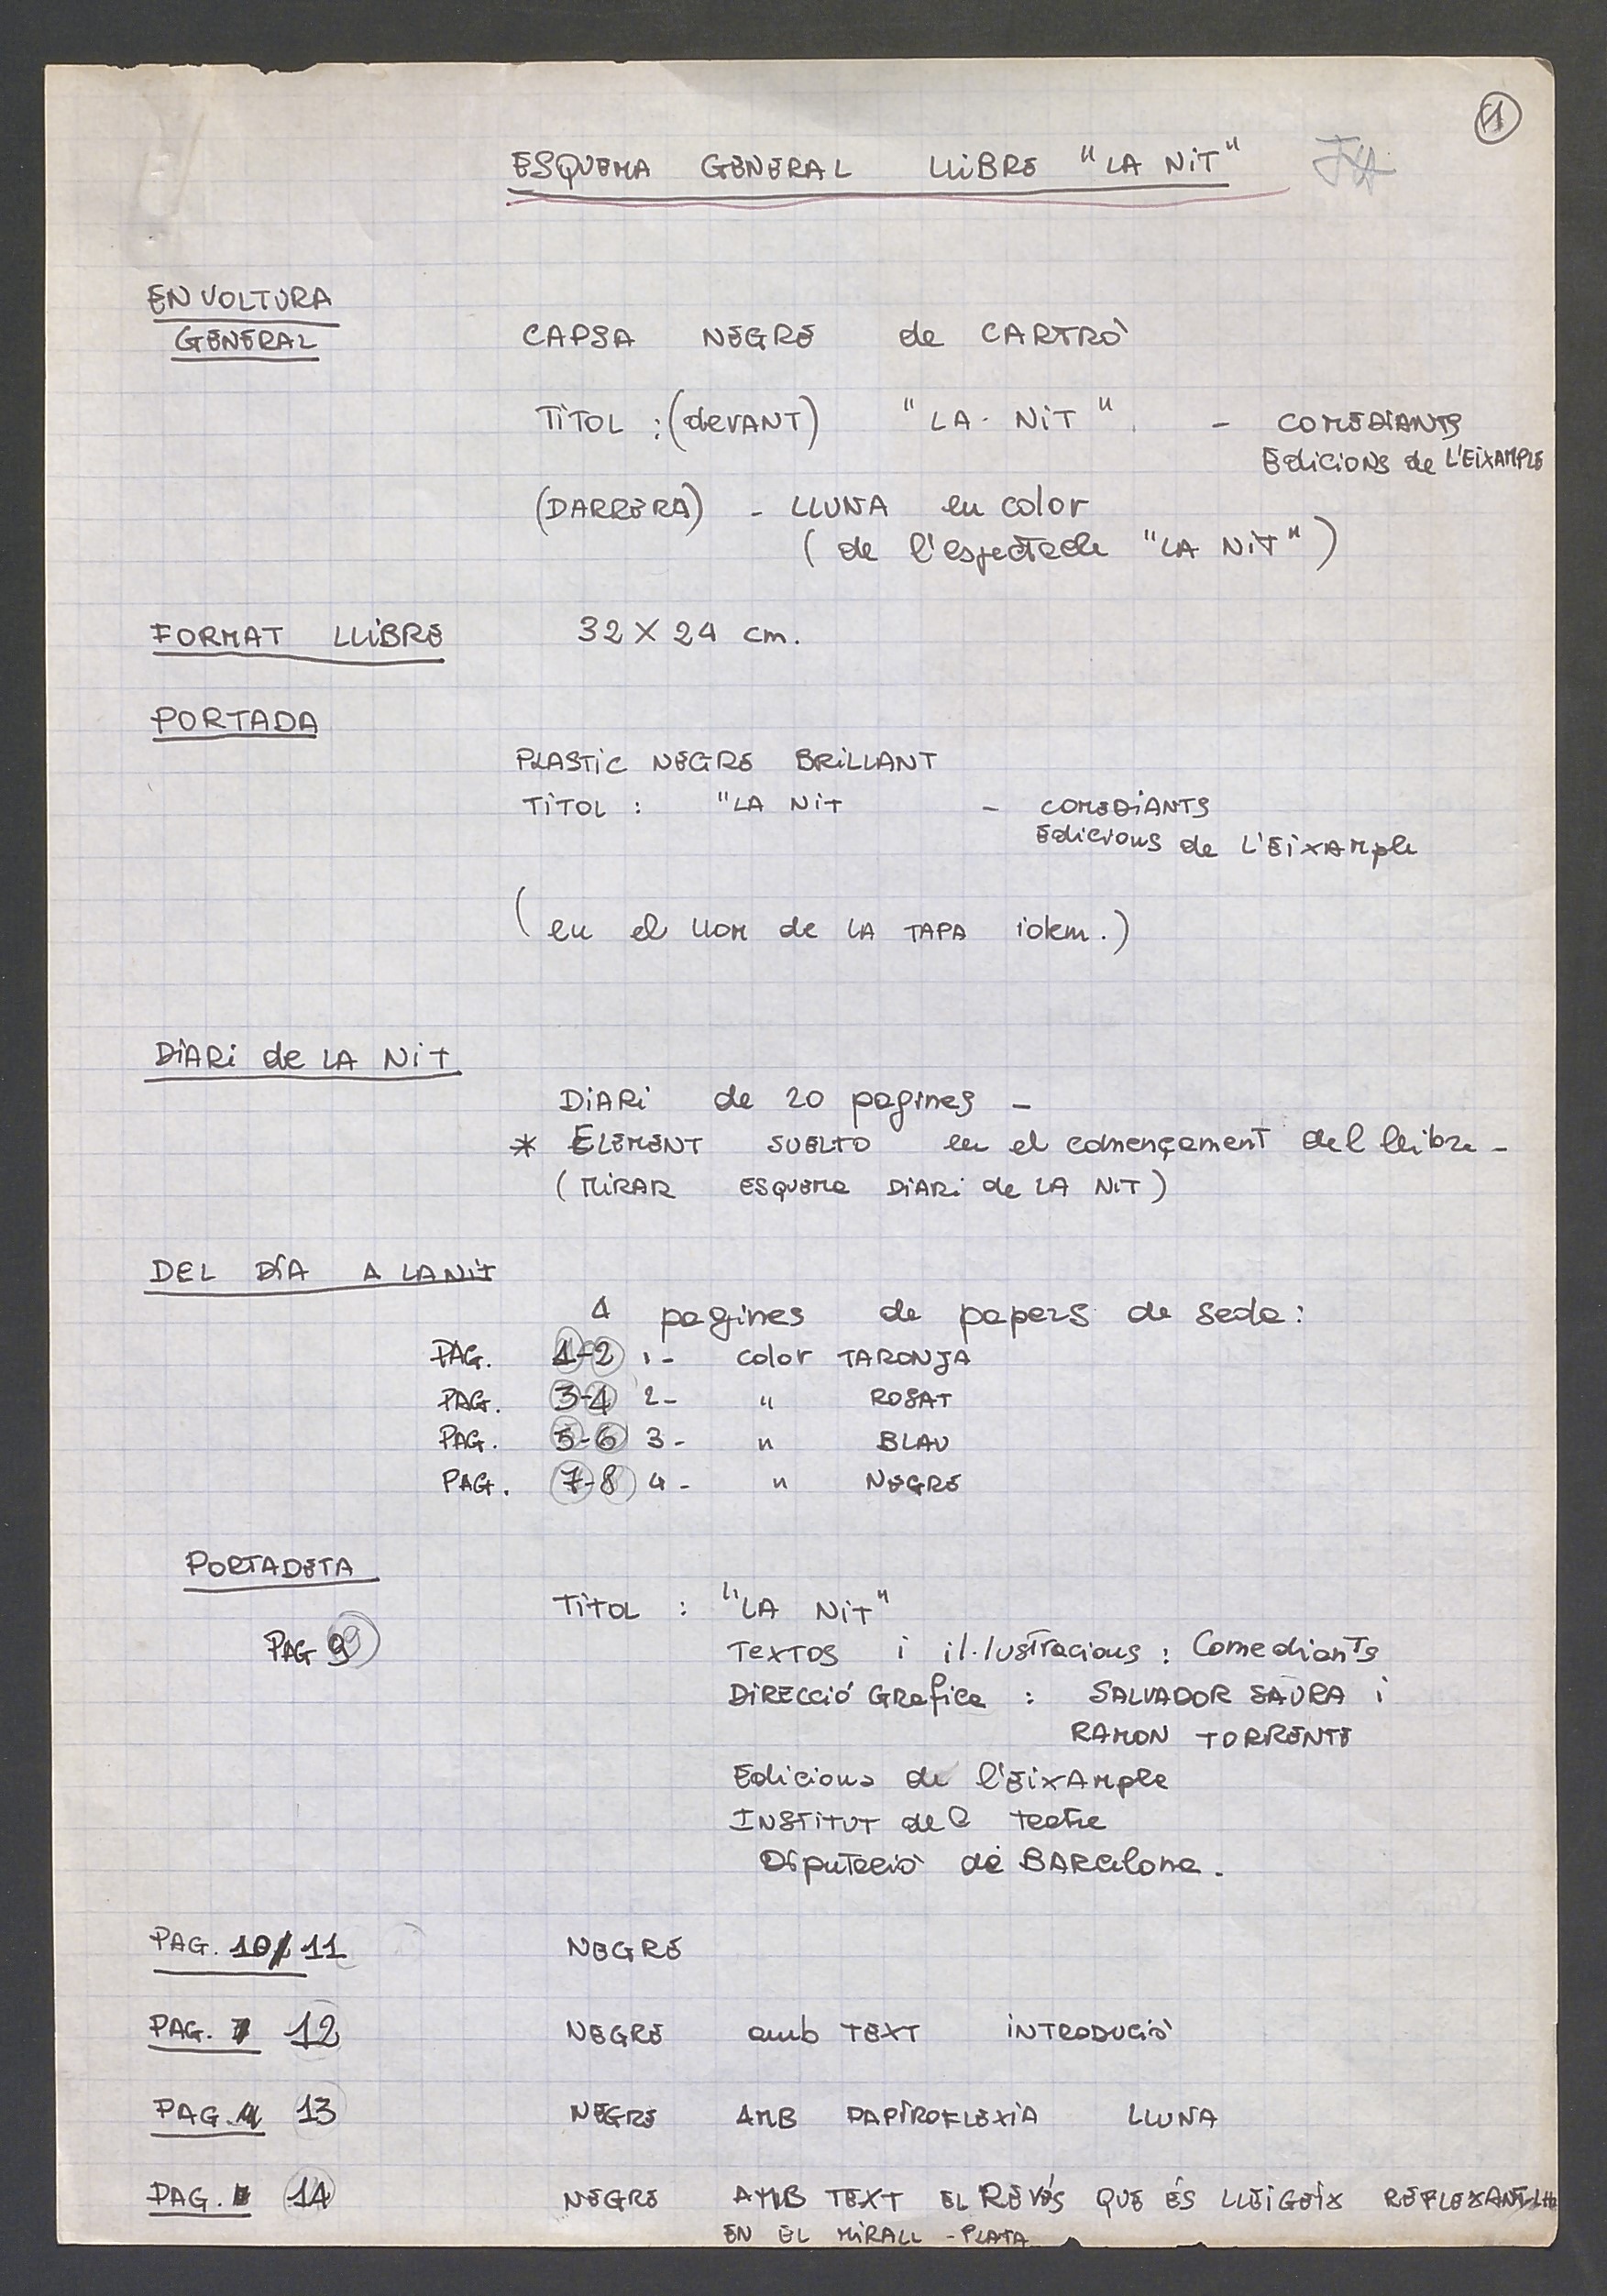 1
ESQUEMA GENERAL LLiBRE "LA NiT"
ENVOLTURA
GENERAL
CAPSA NEGRE de CARTRÒ
TiTOL : (deVANT) "LA NiT" - COMEDIANTS
Edicions de L'EiXAMPLE
(DARRERA) - LLUNA en color
(de l'espectacle "LA NiT")
FORMAT LLiBRE 32 X 24 cm.
PORTADA
PLASTiC NEGRE BRiLLANT
TiTOL : "LA NiT - COMEDiANTS
Edicions de L'EixAMple
(en el LLOM de LA TAPA idem.)
DiARi de LA NiT
DiARi de 20 pagines -
* ELEMENT SUELTO en el començament del llibre -
(MiRAR ESQUEMA DiARi de LA NiT)
DEL DÍA A LA NiT
4 pagines de papers de seda :
PAG. 1-2 1- color TARONJA
PAG. 3-4 2- " ROSAT
PAG. 5-6 3- " BLAU
PAG. 7-8 4- " NEGRE
PORTADETA
TiTOL : "LA NiT"
PAG 9
TEXTOS i il.lustracions : Comediants
DiRECCiÓ Grafica : SALVADOR SAURA i
RAMON TORRENTE
Edicions de l'EixAMple
INSTiTUT del Teatre
Diputaciò de BARcelona.
PAG. 10/11 NEGRE
PAG. 12 NEGRE amb TEXT iNTRODUCiÒ
PAG. 13 NEGRE AMB PAPiROFLEXiA LLUNA
PAG. 14 NEGRE AMB TEXT EL REVÉS QUE ÉS LLEiGEiX
EN EL MiRALL - PLATA